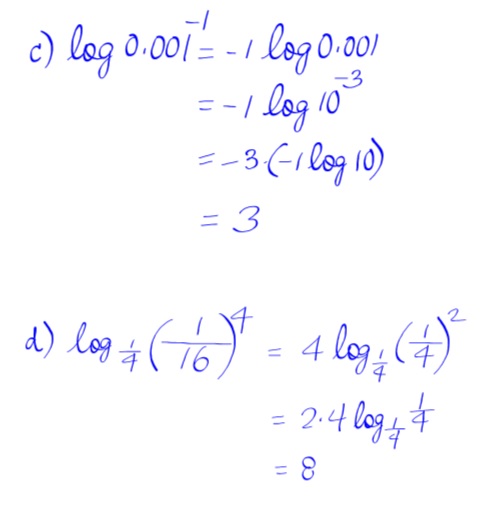 c) log 0.001⁻¹ = -1 log 0.001
= -1 log 10⁻³
= -3·(-1 log 10)
= 3
d) log_{1/4} (1/16)⁴ = 4 log_{1/4} (1/4)²
= 2·4 log_{1/4} 1/4
= 8